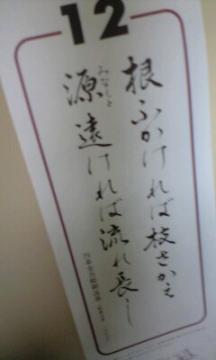 12
根ふかければ枝さかえ
源遠ければ流れ長し
みなもと